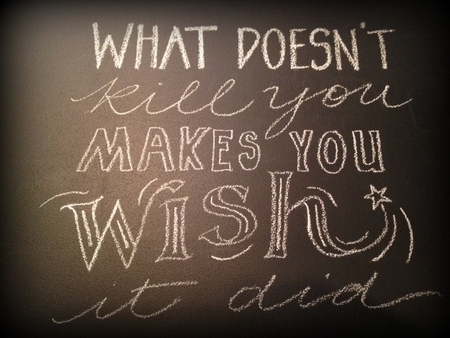 WHAT DOESN'T
kill you
MAKES YOU
WISH
it did